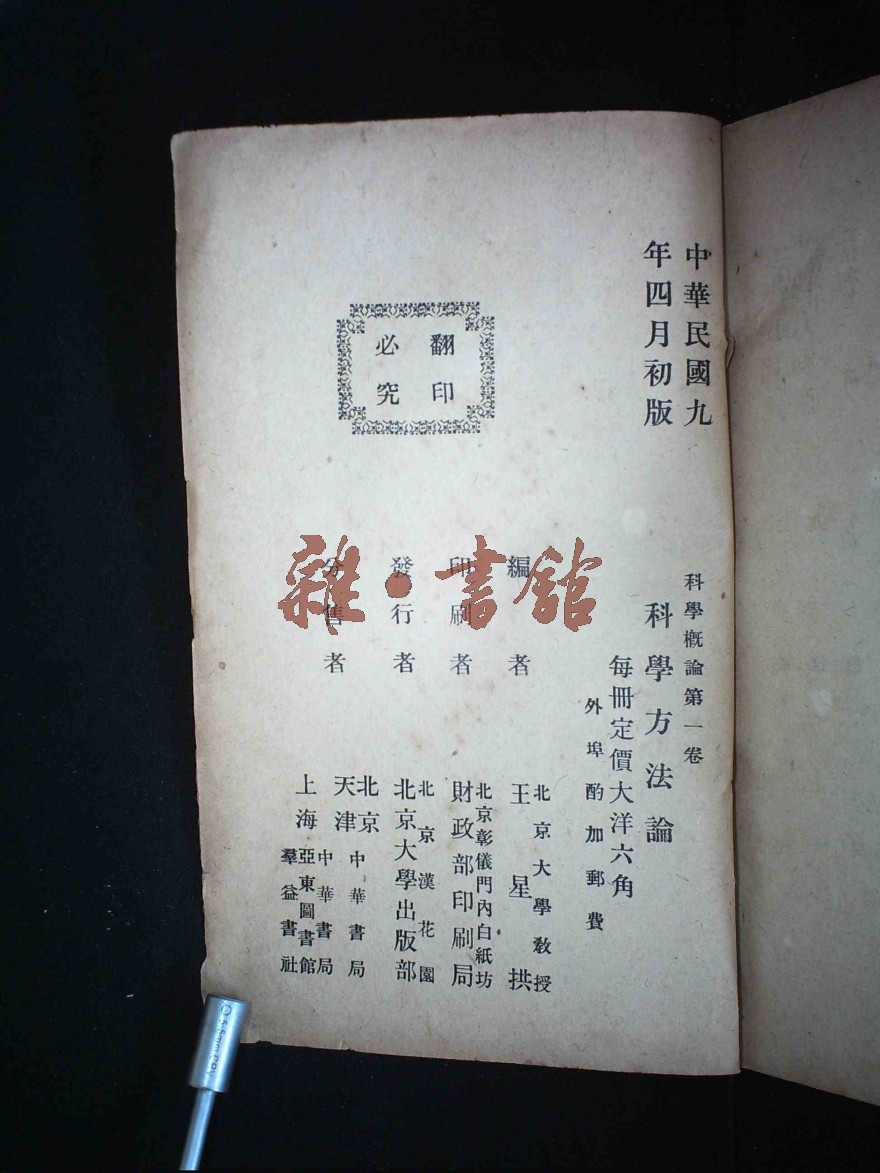 中華民國九
年四月初版
科學概論第一卷
科學方法論
每冊定價大洋六角
外埠酌加郵費
編者
北京大學教授
王星拱
印刷者
北京彰儀門內白紙坊
財政部印刷局
發行者
北京漢花園
北京大學出版部
分售者
北京
天津
中華書局
上海
中華書局
亞東圖書館
羣益書社
翻印
必究
雜·書館
5.5mm CPY